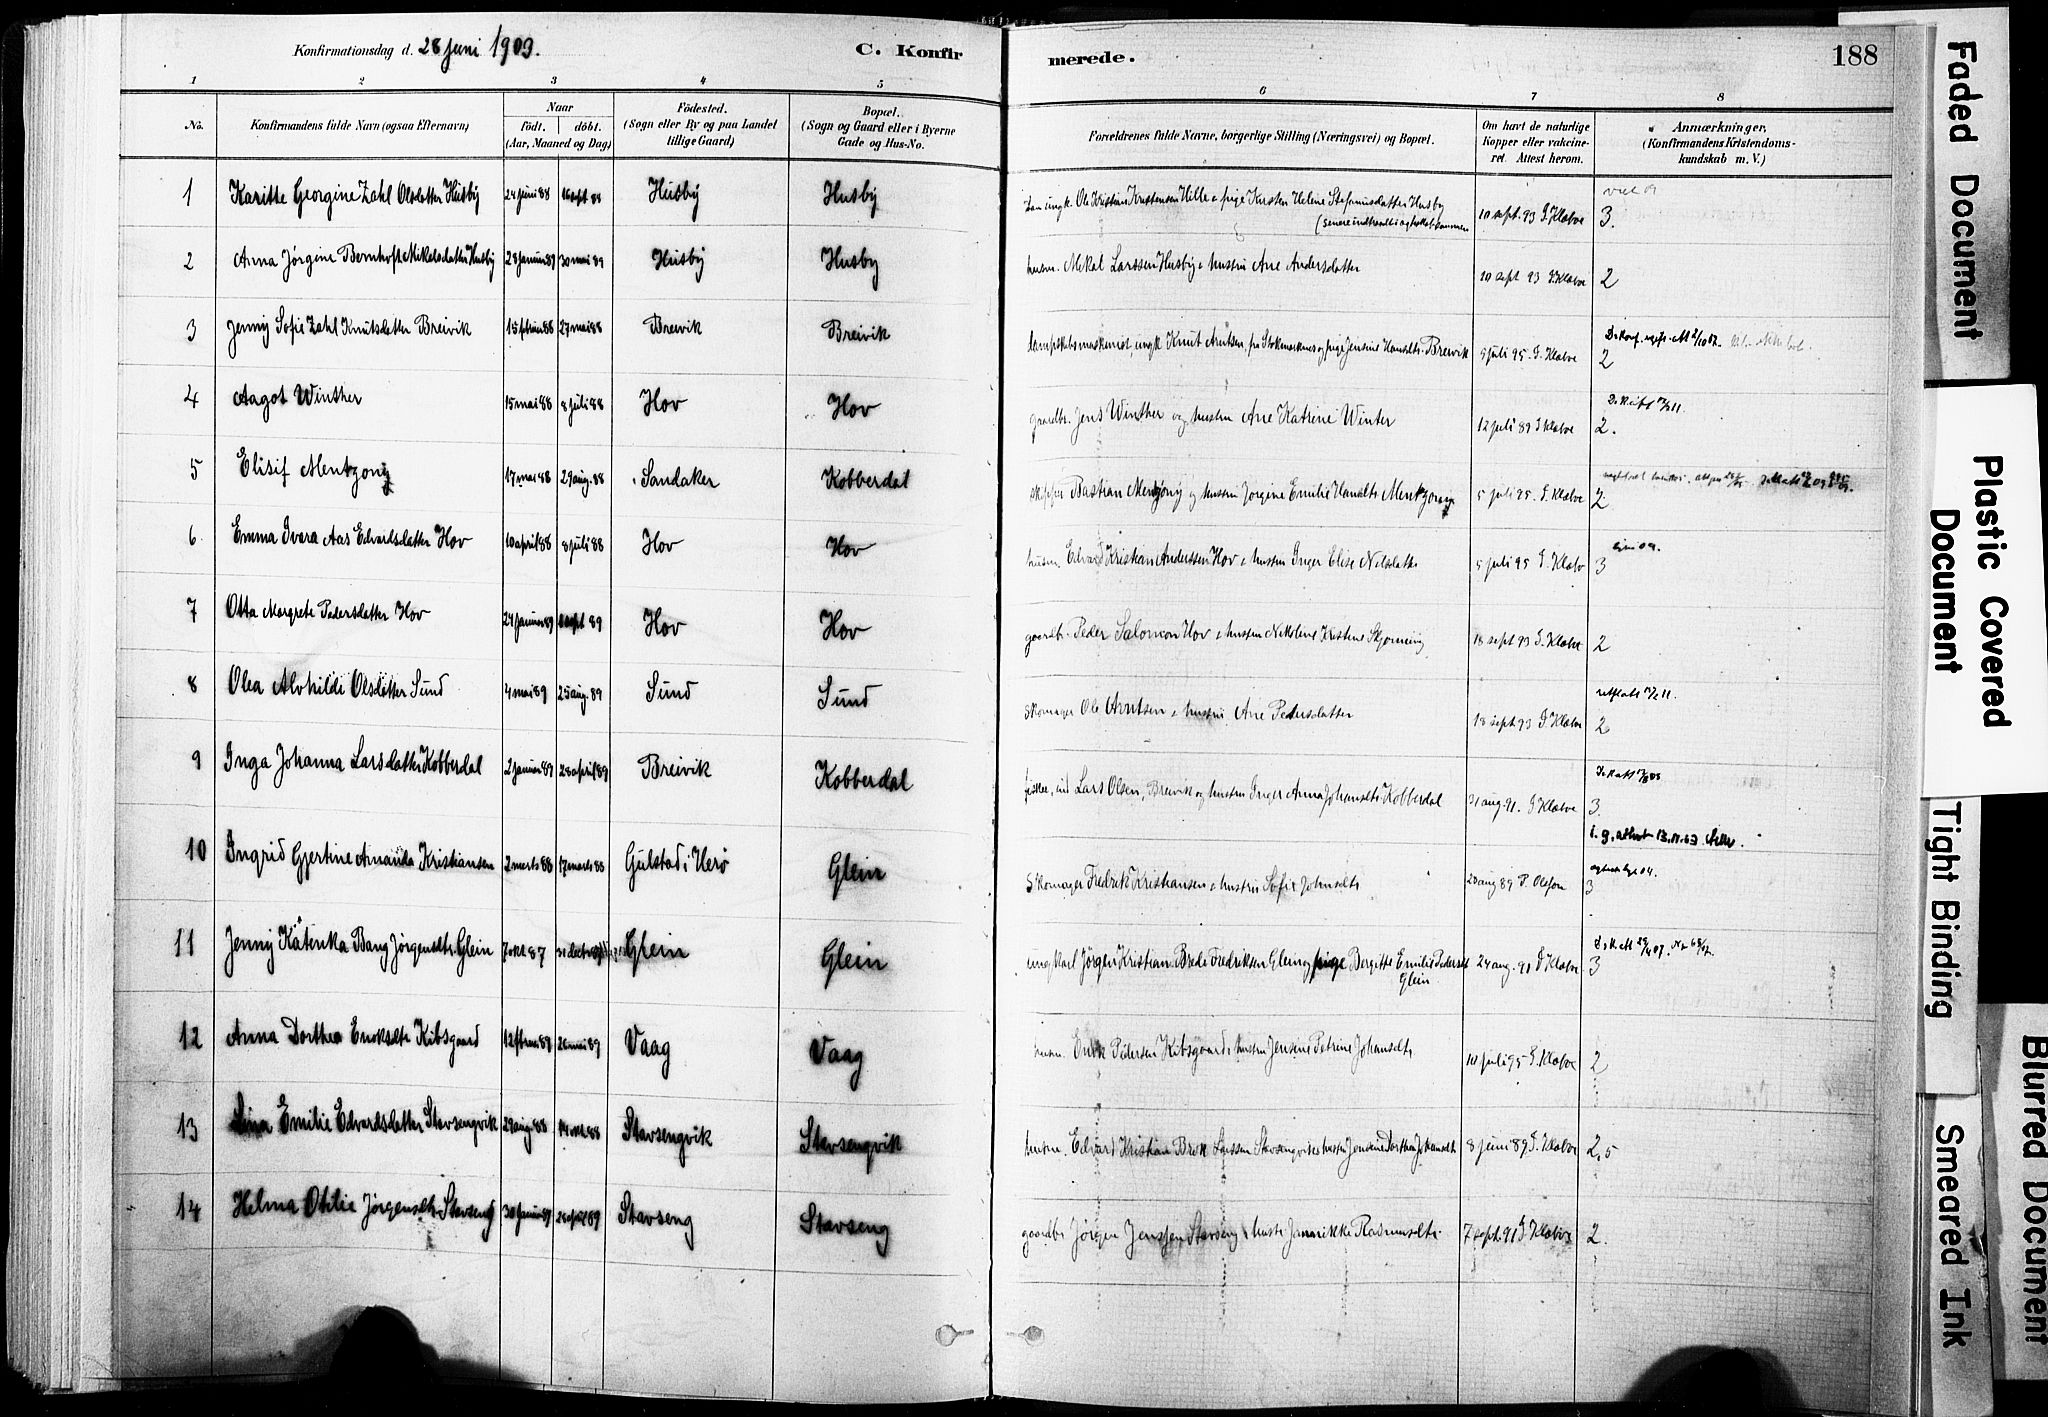 Konfirmationsdag d. 28 juni 1903.
C. Konfirmerede.
188
1 2 3 4 5 6 7 8
No.
Konfirmandens fulde Navn (ogsaa Efternavn)
Naar
födt. döbt.
(Aar, Maaned og Dag)
Födested.
(Sogn eller By og paa Landet
tillige Gaard)
Bopæl.
(Sogn og Gaard eller i Byerne
Gade og Hus-No.
Forældrenes fulde Navne, borgerlige Stilling (Næringsvei) og Bopæl.
Om havt de naturlige
Kopper eller vakcine-
ret. Attest herom.
Anmærkninger.
(Konfirmandens Kristendoms-
kundskab m. V.)
1 Karitte Georgine Zahl Olsdatter Husby 24 juni 88 Husby Husby Ole Kristian Kristensen Hille & pige Karsten Helene Stefanusdatter Husby 10 sept. 93 J. Klæboe 3.
2 Anna Jørgine Bernhoft Mikelsdatter Husby 28 januar 89 30 mai 89 Husby Husby husm. Mikal Larssen Husby & hustru Ane Andersdatter 10 sept 93 J. Klæboe 2
3 Jenny Sofie Zahl Knutsdatter Breivik 15 februar 88 27 mai 88 Breivik Breivik ungk. Knut Arntsen, fra Stokmarknes og pige Jensine Hansdtr. Breivik 5 juli 95. J. Klæboe 2
4 Aagot Winther 15 mai 88 8 juli 88 Hov Hov gaardbr. Jens Winther og hustru Ane Katrine Winter 12 juli 89 J Klæboe 2.
5 Elisif Mentzony 17 mai 88 29 aug. 88 Sandaker Kobberdal skipper Bastian Mentzony og hustru Jørgine Emilie Hansdtr Mentzony 5 juli 95. J. Klæboe 2
6 Emma Ivara Aas Edvardsdatter Hov 10 april 88 8 juli 88 Hov Hov husm. Edvard Kristian Anderssen Hov & hustru Inger Elise Nilsdatter 5 juli 95 J. Klæboe 3
7 Otta Margrete Pedersdatter Hov 24 januar 89 sept 89 Hov Hov gaardbr. Peder Salomon Hov & hustru Nikoline Kristine Skjerning 18 sept 93 J. Klæboe 2
8 Olea Alvhilde Olsdatter Sund 4 mai 89 25 aug. 89 Sund Sund skomager Ole Arntsen & hustru Ane Pedersdatter 18 sept. 93 J. Klæboe 2
9 Inga Johanna Larsdatter Kobberdal 2 januar 89 28 april 89 Breivik Kobberdal Lars Olsen, Breivik og hustru Inger Anna Johansdtr Kobberdal 31 aug. 91. J Klæboe 3.
13.11.63
10 Ingrid Gjertine Amanda Kristiansen 2 marts 88 17 marts 88 Gulstad i Herø Glein Skomager Fredrik Kristiansen & hustru Sofie Johnsdtr 23 aug 89 P. Olafson 3
11 Jenny Katinka Bang Jørgensdtr. Glein 7 okt 87 Glein Glein ungkarl Jørgen Kristian Brede Fredriksen Glein og pige Bergitte Emilie Pedersdtr 24 aug. 91 J Klæboe 3
Glein
12 Anna Dorthea Enoksdtr Kibsgaard 12 februar 89 26 mai 89 Vaag Vaag husm. Enok Pedersen Kibsgaard & hustru Jensine Petrine Johansdtr 10 juli 95 J. Klæboe 2
13 Emilie Edvardsdatter Stavsengvik 29 aug 88 14 okt 88 Stavsengvik Stavsengvik husm. Edvard Kristian Larssen Stavsengvik & hustru Jensine Dorthea Johansdtr 8 juni 89 J. Klæboe 2,5
14 Helma Otilie Jørgensdtr. Stavseng 30 januar 89 28 april 89 Stavseng Stavseng gaardbr Jørgen Jenssen Stavseng & hustr Jannikke Rasmusdtr. 7 sept. 91 J Klæboe 2.
Faded Document
Plastic Covered
Document
Tight Binding
Smeared Ink
Blurred Document